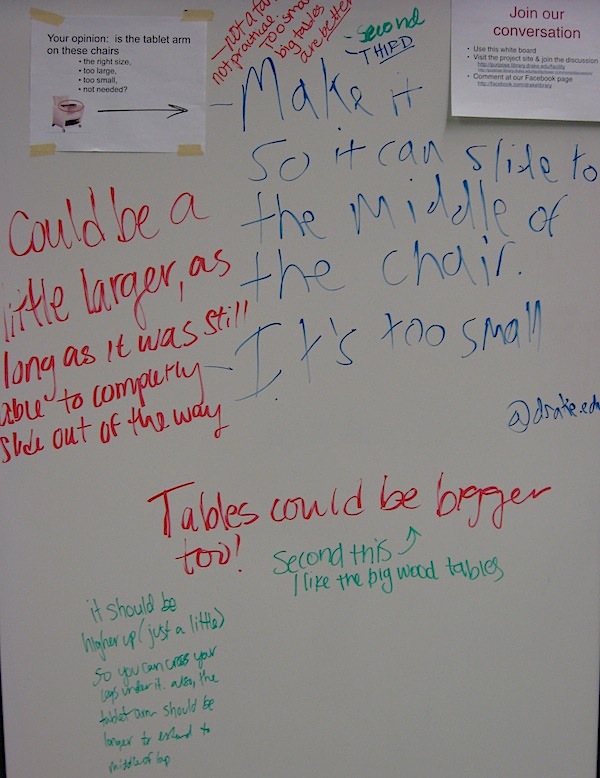 Your opinion: is the tablet arm
on these chairs
• the right size,
• too large,
• too small,
• not needed?
— not a fan
not practical.
Too small
big tables
are better
- Second
THIRD
Join our
conversation
• Use this white board
• Visit the project site & join the discussion
• Comment at our Facebook page
http://facebook.com/drakelibrary
- Make it
so it can slide to
the middle of
the chair.
- It's too small
Could be a
little larger, as
long as it was still
able to completly
slide out of the way
@drake.edu
Tables could be bigger
too!
Second this
I like the big wood tables
it should be
higher up (just a little)
so you can cross your
legs under it. also, the
tablet arm should be
longer to extend to
middle of lap